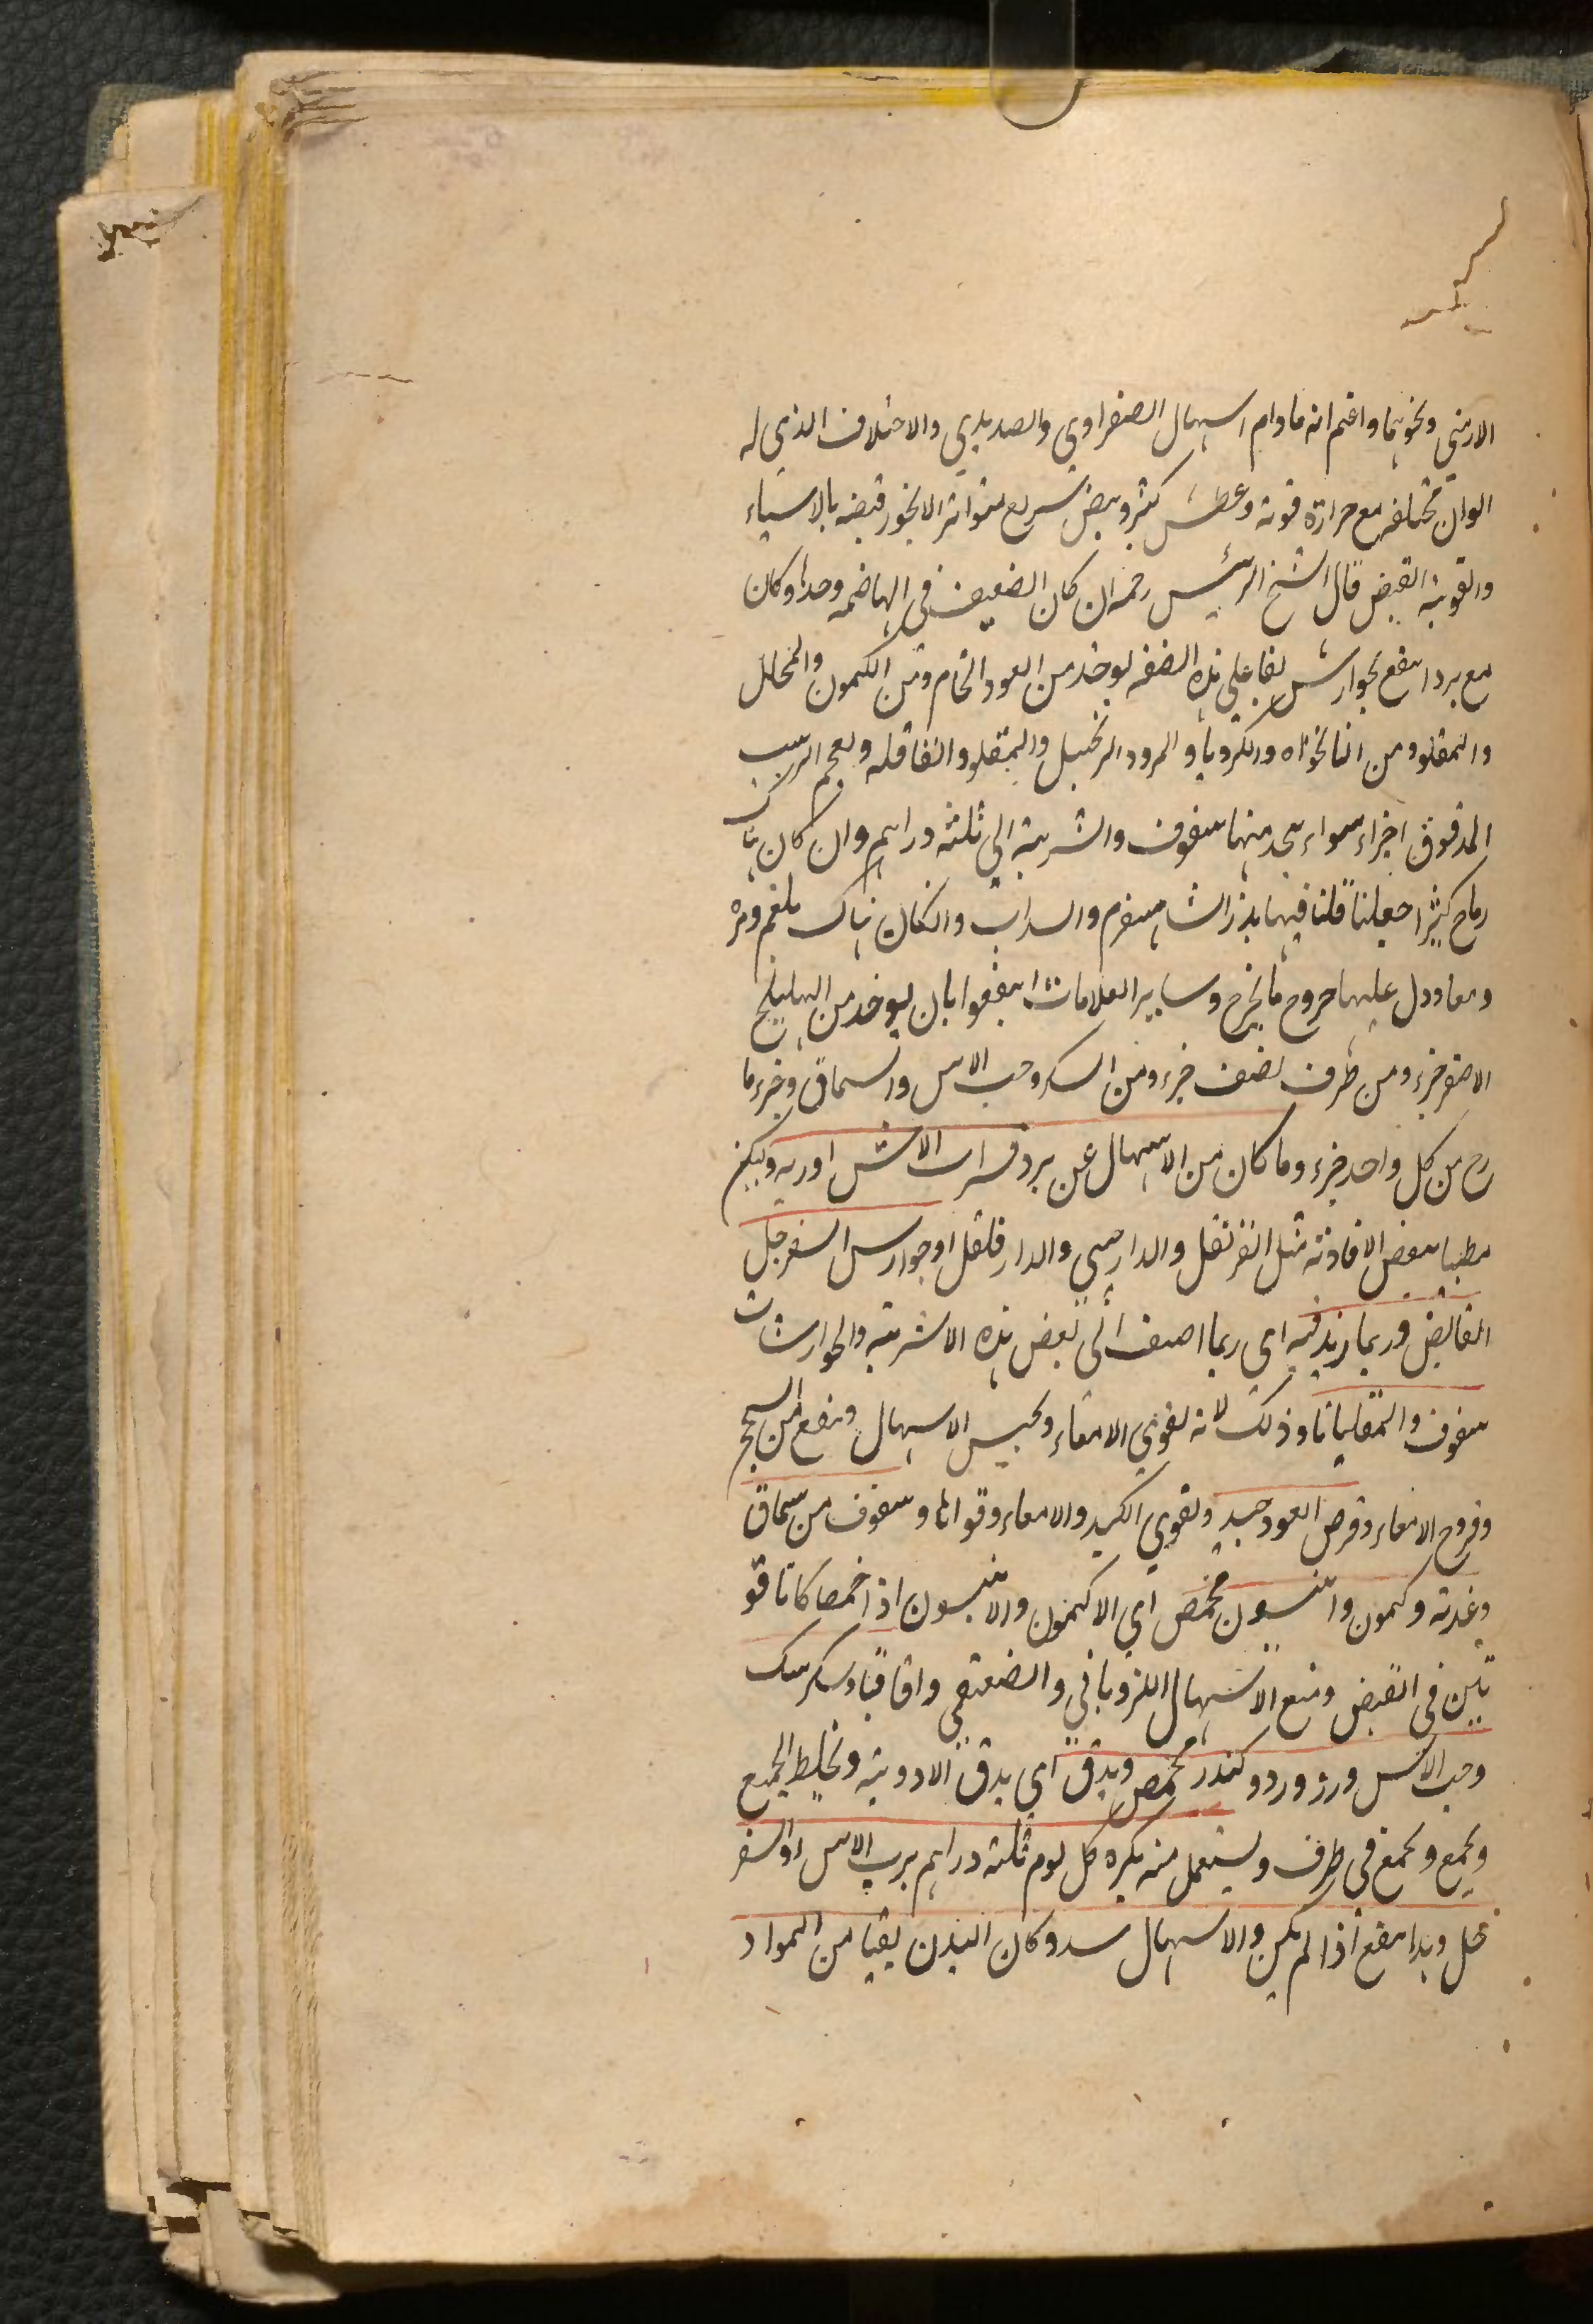 الارمني ونحوهما واعلم انه مادام اسهال الصفراوي والصديدي والاختلاف الذي له
الوان مختلفه مع حرارة قوية وعطش كثير ونبض سريع متواتر لا يجوز قبضه بالاشياء
والقوية القبض قال الشيخ الرئيس رحمه ان كان الضعيف في الهاضمه وحدها وكان
مع برد انتفع بجوارش على هذه الصفه يوخذ من العود الخام ومن الكمون والمخلل
والمقلو ومن النانخواه والكرويا و الزنجبيل والمقلو والقاقله وبعجم الزبيب
المدقوق اجزاء سواء يتخذ منها سفوف والشربة الي ثلثه دراهم وان كان هناك
رياح كثيرا جعلنا قلنا فيها بذر الشاهسفرم والسداب وان كان هناك بلغم ومره
ومعا ودل عليها خروج ما يخرج وساير العلامات انتفعوا بان يوخذ من الهليلج
الاصفر جزء ومن حرف نصف جزء ومن السك وحب الاس والسماق وجزء ما
رح من كل واحد جزء وما كان من الاسهال عن برد فشراب الاس اوربه وليكن
مطيبا ببعض الافاوية مثل القرنفل والدارصيني والدارفلفل او جوارش السفرجل
القابض وربما زيد فيه اي ربما اضيف الى بعض هذه الاشربة والجوارشات
سفوف والمقلياثا وذلك لانه يقوي الامعاء ويحبس الاسهال وينفع من السحج
وقروح الامعاء وقرص العود جيد ويقوي الكبد والامعاء وقواها وسفوف من سماق
وغيره وكمون وانيسون محمص اي الاكمون والانيسون اذا حمصا كانا قو
يين في القبض ومنع الاسهال الذوباني والضعفي واقاقيا وسك
وحب الاس وزر ورد وكندر محمص ويدق اي يدق الادوية ويخلط الجميع
ويجمع ويجمع في ظرف ويستعمل منه بكره كل يوم ثلثه دراهم برب الاس والسفر
جل وهذا ينفع اذا لم يكن والاسهال سدد وكان البدن نقيا من المواد